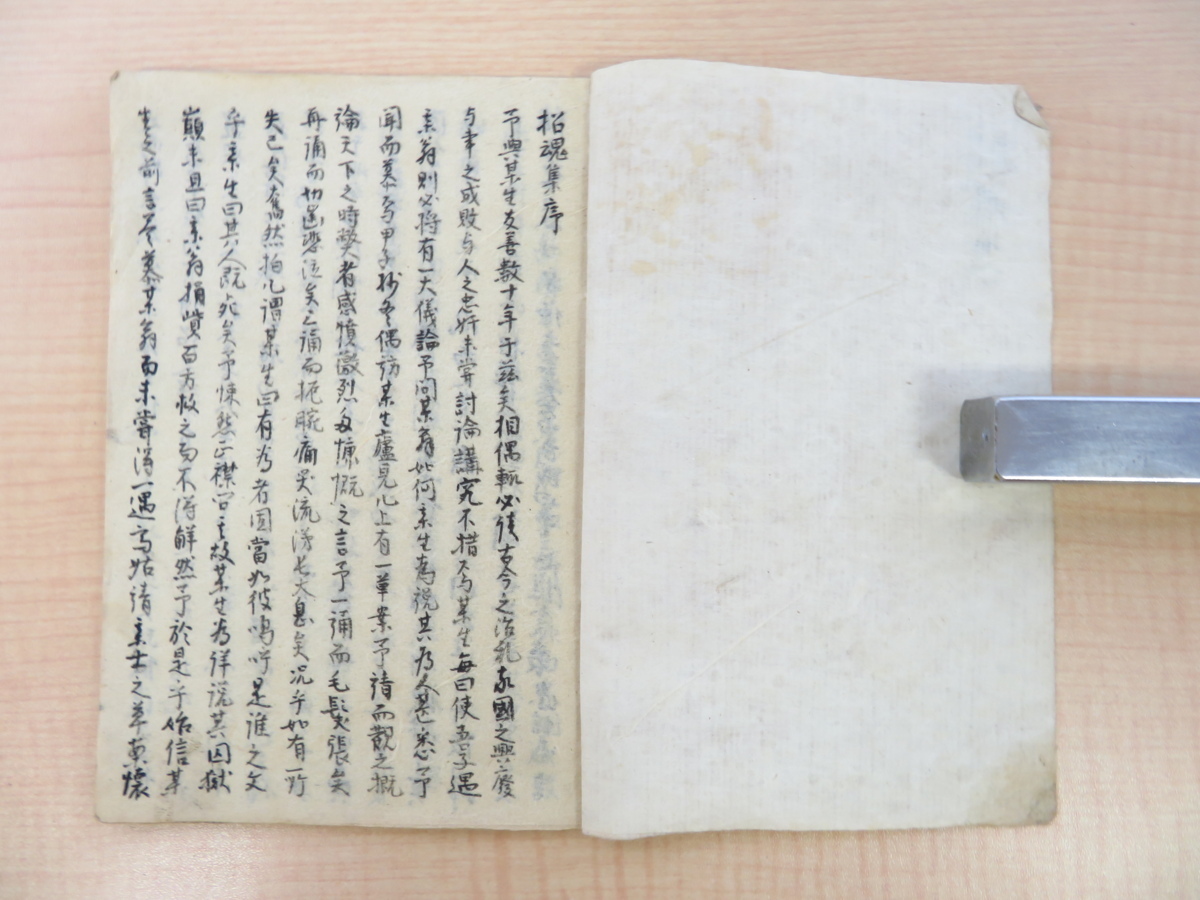 招魂集序
予與某生友善数十年于茲矣相偶輒必談古今之治乱家國之興廢
与事之成敗与人之忠奸未嘗討論講究不措大与某生每曰使吾子遇
某翁則必将有一大儀論予問某翁如何某生為説其為人甚悉予
聞而慕焉甲子抄冬偶訪某生廬見几上有一草案予請而觀之概
論天下之時弊者感憤激烈多慷慨之言予一誦而毛髪張矣
再誦而切歯悲泣矣三誦而扼腕痛哭流涕長大息矣况乎如有所
失已矣奮然拍几謂某生曰有為者固當如彼嗚呼是誰之文
乎某生曰其人既死矣予悚然正襟問其故某生為詳説其囚獄
顛末且曰某翁損貲百方救之而不得解然予於是乎始信某
生之前言益慕某翁而未嘗得一遇焉姑請某士之草藁懷